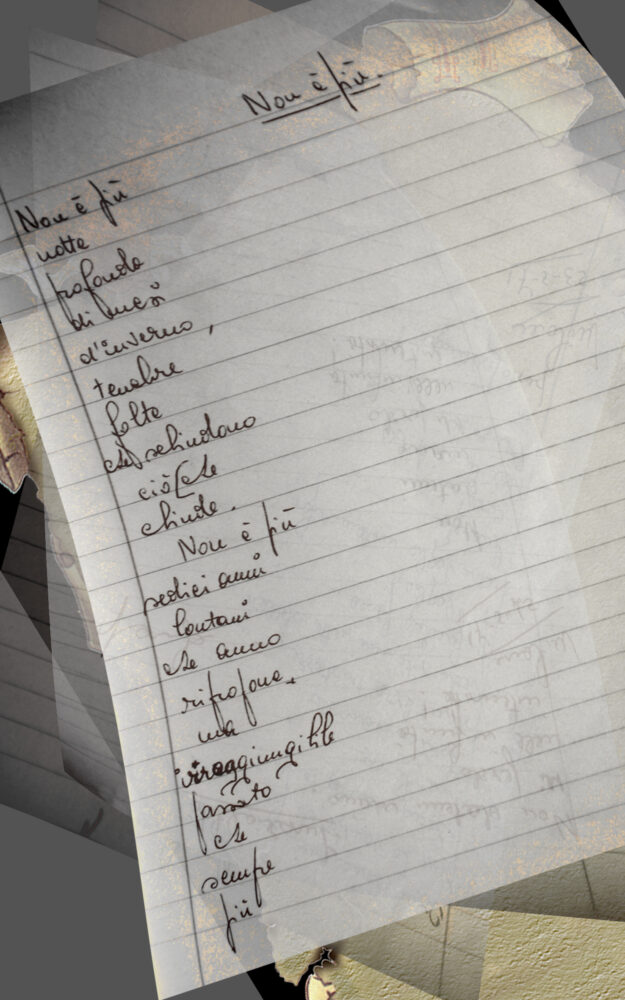 Non è più.
Non è più
notte
profonda
di mesi
d'inverno,
tenebre
folte
che schiudono
ciò che
chiude.
Non è più
sedici anni
lontani
che anno
ma
irraggiungibile
passato
che
sempre
più